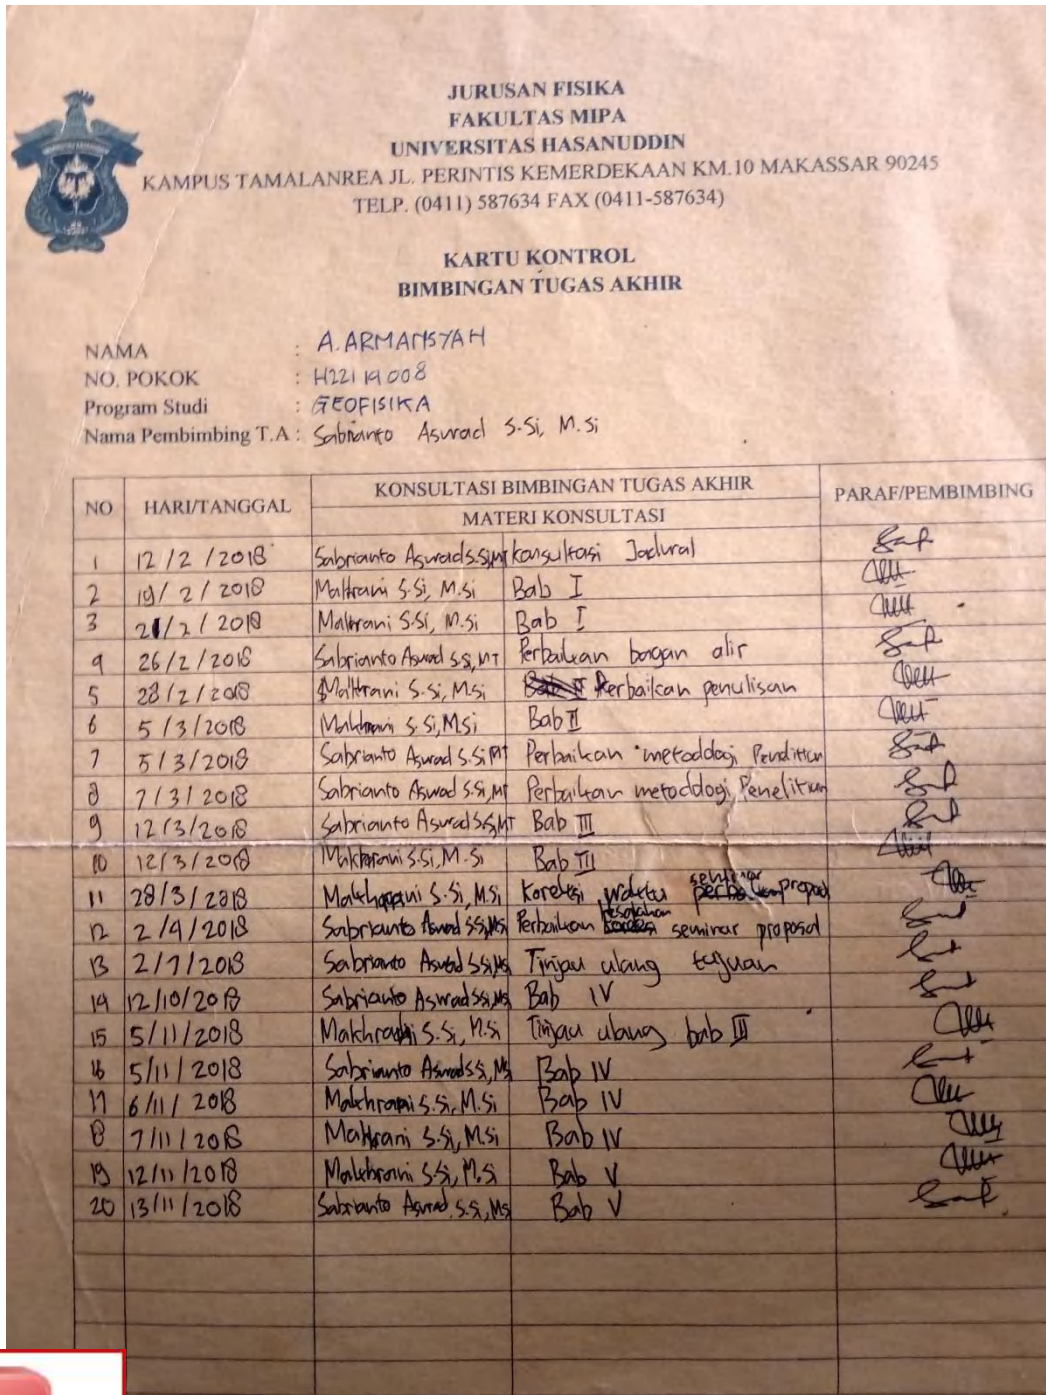 JURUSAN FISIKA
FAKULTAS MIPA
UNIVERSITAS HASANUDDIN
KAMPUS TAMALANREA JL. PERINTIS KEMERDEKAAN KM.10 MAKASSAR 90245
TELP. (0411) 587634 FAX (0411-587634)
KARTU KONTROL
BIMBINGAN TUGAS AKHIR
NAMA : A. ARMANSYAH
NO. POKOK : H22114008
Program Studi : GEOFISIKA
Nama Pembimbing T.A : Sabrianto Aswad S.Si, M.Si
NO HARI/TANGGAL KONSULTASI BIMBINGAN TUGAS AKHIR PARAF/PEMBIMBING
MATERI KONSULTASI
1 12/2/2018 Sabrianto Aswad S.Si,MT konsultasi Jadural
2 19/2/2018 Makhrani S.Si, M.Si Bab I
3 21/2/2018 Makhrani S.Si, M.Si Bab I
4 26/2/2018 Sabrianto Aswad S.Si, MT Perbaikan bagan alir
5 28/2/2018 Makhrani S.Si, M.Si Perbaikan penulisan
6 5/3/2018 Makhrani S.Si, M.Si Bab II
7 5/3/2018 Sabrianto Aswad S.Si MT Perbaikan metodologi Penelitian
8 7/3/2018 Sabrianto Aswad S.Si, MT Perbaikan metodologi Penelitian
9 12/3/2018 Sabrianto Aswad S.Si, MT Bab III
10 12/3/2018 Makhrani S.Si, M.Si Bab III
11 28/3/2018 Makhrani S.Si, M.Si Koreksi waktu seminar proposal
12 2/4/2018 Sabrianto Aswad S.Si, MSi Perbaikan kesalahan seminar proposal
13 2/7/2018 Sabrianto Aswad S.Si, MSi Tinjau ulang tujuan
14 12/10/2018 Sabrianto Aswad S.Si, MSi Bab IV
15 5/11/2018 Makhrani S.Si, M.Si Tinjau ulang bab III
16 5/11/2018 Sabrianto Aswad S.Si, MSi Bab IV
17 6/11/2018 Makhrani S.Si, M.Si Bab IV
8 7/11/2018 Makhrani S.Si, M.Si Bab IV
19 12/11/2018 Makhrani S.Si, M.Si Bab V
20 13/11/2018 Sabrianto Aswad S.Si, MSi Bab V